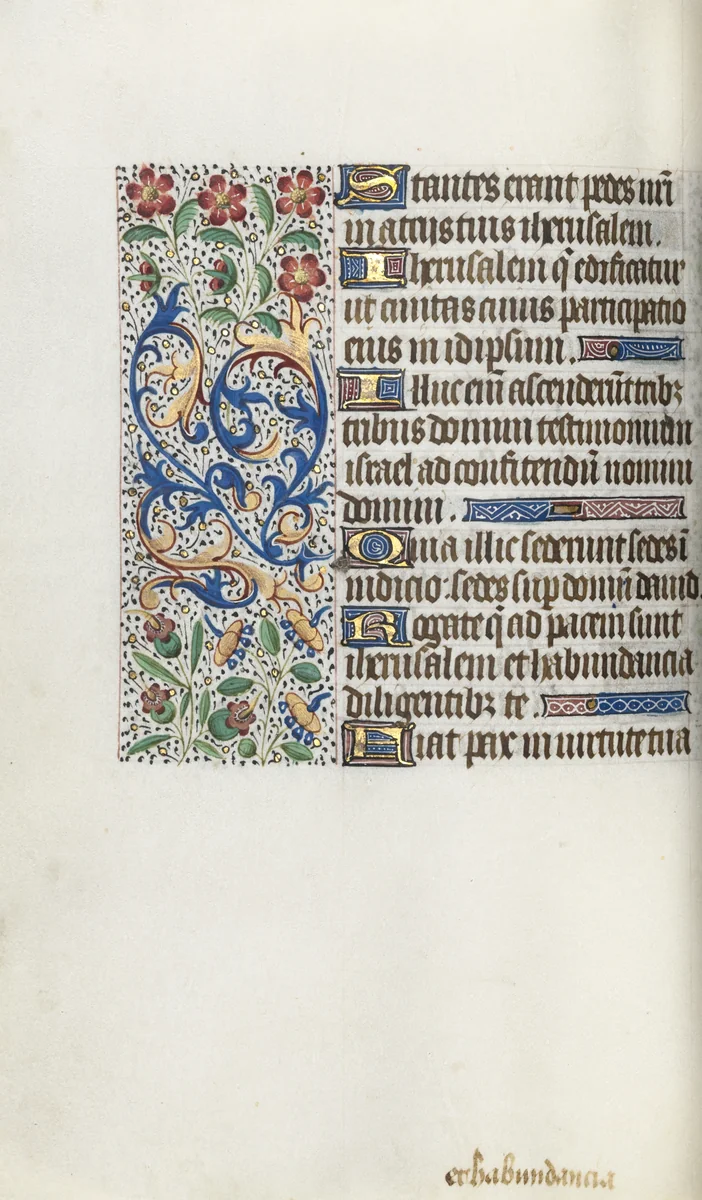 Stantes erant pedes nr̄i
in atrijs tuis iherusalem.
Iherusalem q̄ edificatur
ut ciuitas cuius participatio
eius in idipsum.
Illuc eī ascenderūt tribꝫ
tribus domini testimonium
israel ad confitendū nomini
domini.
Quia illic sederunt sedes ī
iudicio: sedes sup domū dauid.
Rogate q̄ ad pacem sunt
iherusalem et habundancia
diligentibꝫ te.
Fiat pax in uirtute tua
et habundancia